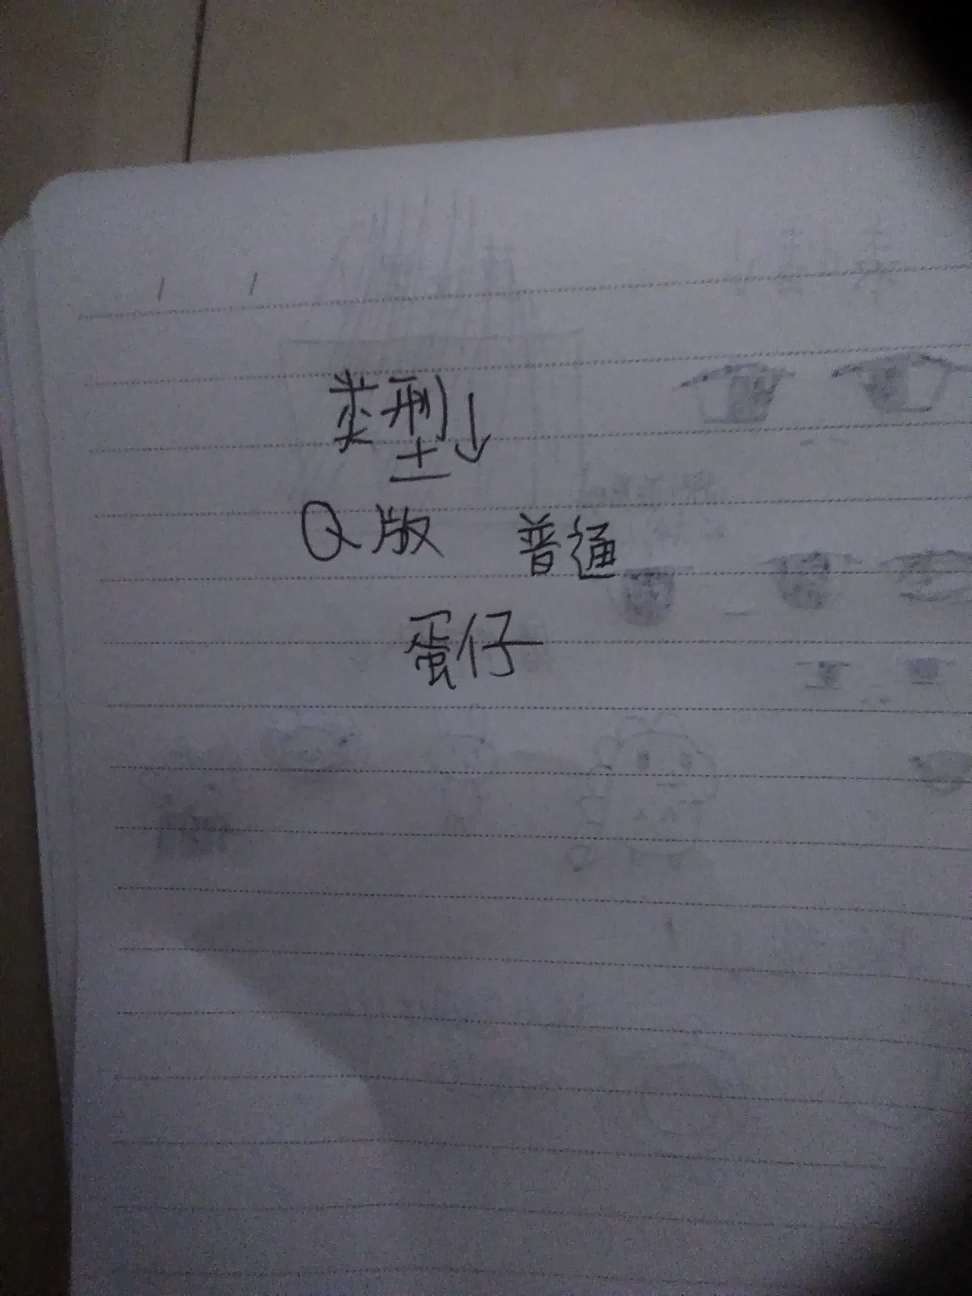 类型↓
Q版 普通
蛋仔